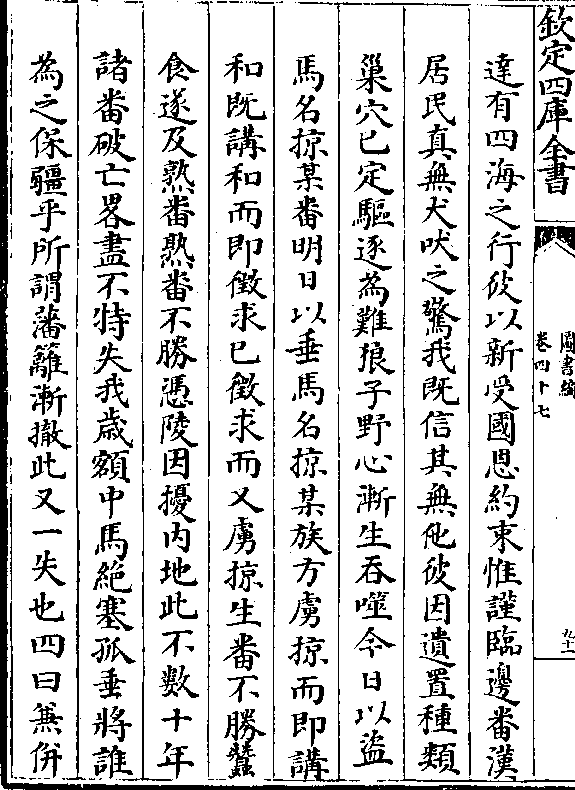 欽定四庫全書
圖書編
卷四十七
九十一
達有四海之行彼以新受國恩約束惟謹臨邊畨漢
居民真無犬吠之驚我既信其無他彼因遺置種類
巢穴已定驅逐為難狼子野心漸生吞噬今日以盜
馬名掠某畨明日以垂馬名掠某族方虜掠而即講
和既講和而即徵求已徵求而又虜掠生畨不勝蠶
食遂及熟畨熟畨不勝憑陵因擾内地此不數十年
諸畨破亡畧盡不特失我歳額中馬絶塞孤垂將誰
為之保疆乎所謂藩籬漸撤此又一失也四曰兼併